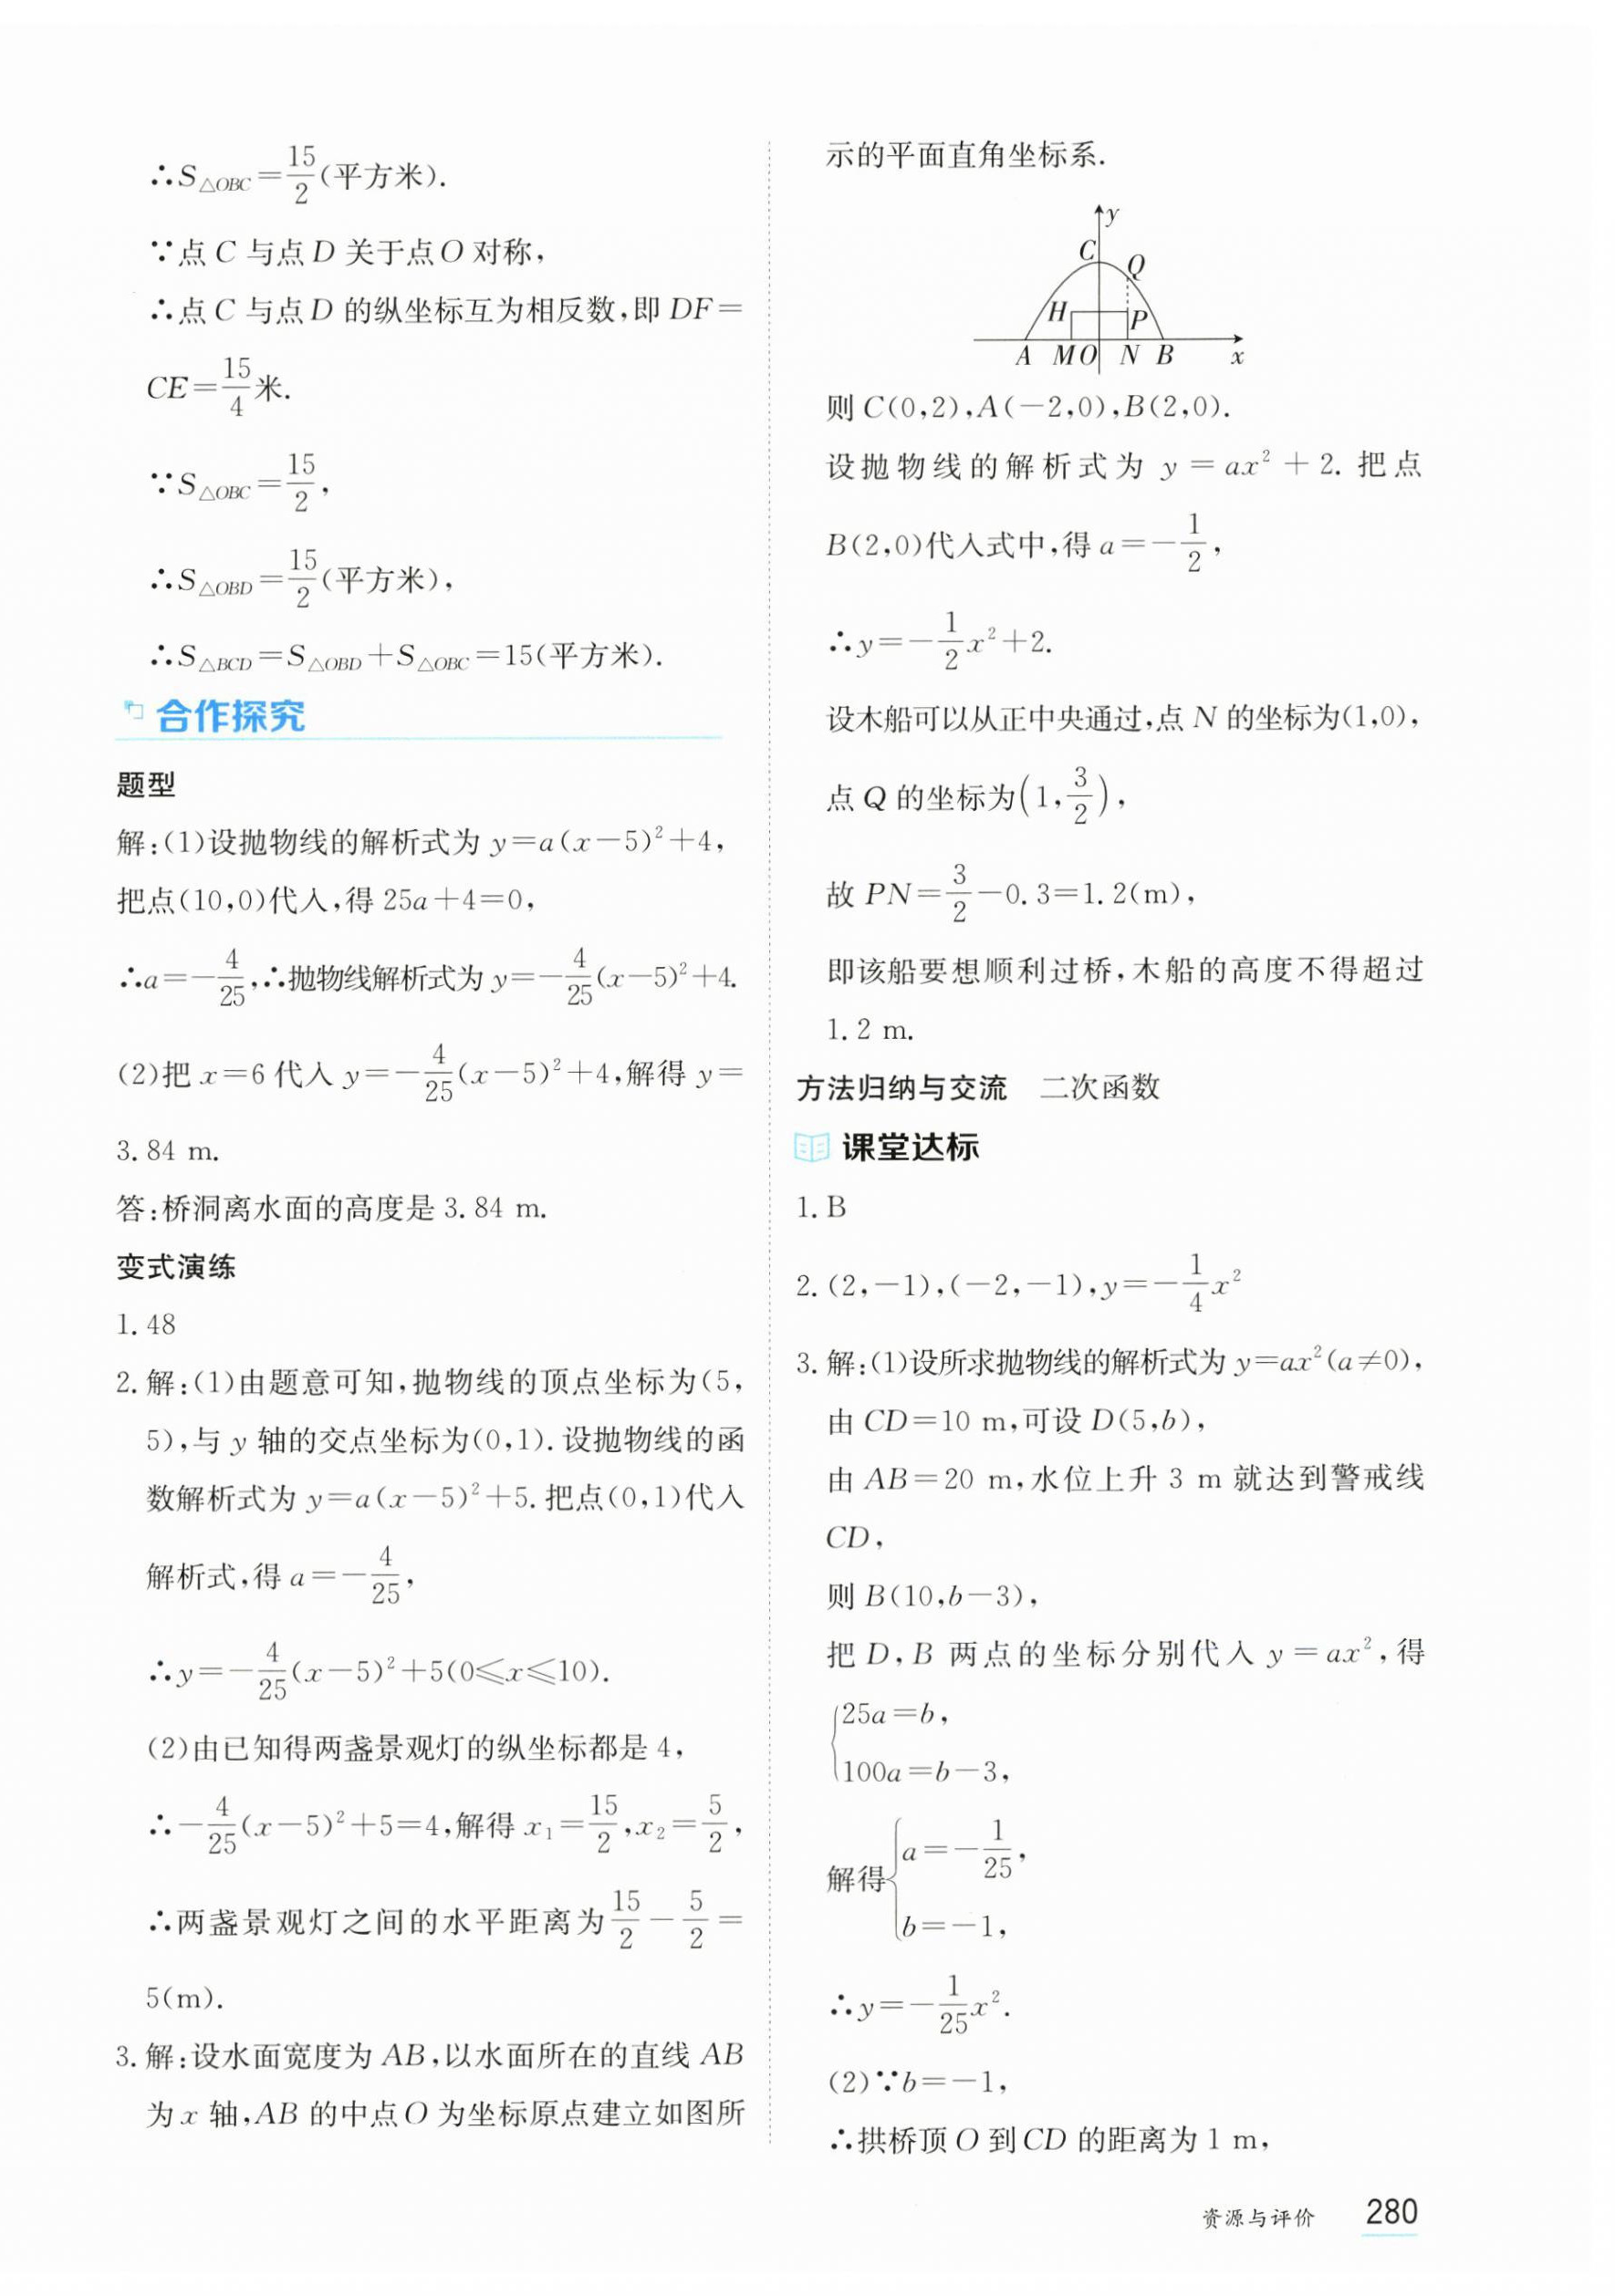 ∴S△OBC=15/2(平方米).
∵点 C 与点 D 关于点 O 对称,
∴点 C 与点 D 的纵坐标互为相反数,即 DF=
CE=15/4米.
∵S△OBC=15/2,
∴S△OBD=15/2(平方米),
∴S△BCD=S△OBD+S△OBC=15(平方米).
合作探究
题型
解:(1)设抛物线的解析式为 y=a(x-5)²+4,
把点(10,0)代入,得 25a+4=0,
∴a=-4/25,∴抛物线解析式为 y=-4/25(x-5)²+4.
(2)把 x=6 代入 y=-4/25(x-5)²+4,解得 y=
3.84 m.
答:桥洞离水面的高度是 3.84 m.
变式演练
1.48
2.解:(1)由题意可知,抛物线的顶点坐标为(5,
5),与 y 轴的交点坐标为(0,1).设抛物线的函
数解析式为 y=a(x-5)²+5.把点(0,1)代入
解析式,得 a=-4/25,
∴y=-4/25(x-5)²+5(0≤x≤10).
(2)由已知得两盏景观灯的纵坐标都是 4,
∴-4/25(x-5)²+5=4,解得 x₁=15/2,x₂=5/2,
∴两盏景观灯之间的水平距离为15/2-5/2=
5(m).
3.解:设水面宽度为 AB,以水面所在的直线 AB
为 x 轴,AB 的中点 O 为坐标原点建立如图所
示的平面直角坐标系.
y
C
Q
H
P
A M O N B x
则 C(0,2),A(-2,0),B(2,0).
设抛物线的解析式为 y=ax²+2.把点
B(2,0)代入式中,得 a=-1/2,
∴y=-1/2x²+2.
设木船可以从正中央通过,点 N 的坐标为(1,0),
点 Q 的坐标为(1,3/2),
故 PN=3/2-0.3=1.2(m),
即该船要想顺利过桥,木船的高度不得超过
1.2 m.
方法归纳与交流 二次函数
课堂达标
1.B
2.(2,-1),(-2,-1),y=-1/4x²
3.解:(1)设所求抛物线的解析式为 y=ax²(a≠0),
由 CD=10 m,可设 D(5,b),
由 AB=20 m,水位上升 3 m 就达到警戒线
CD,
则 B(10,b-3),
把 D,B 两点的坐标分别代入 y=ax²,得
{25a=b,
100a=b-3,
解得{a=-1/25,
b=-1,
∴y=-1/25x².
(2)∵b=-1,
∴拱桥顶 O 到 CD 的距离为 1 m,
资源与评价 280